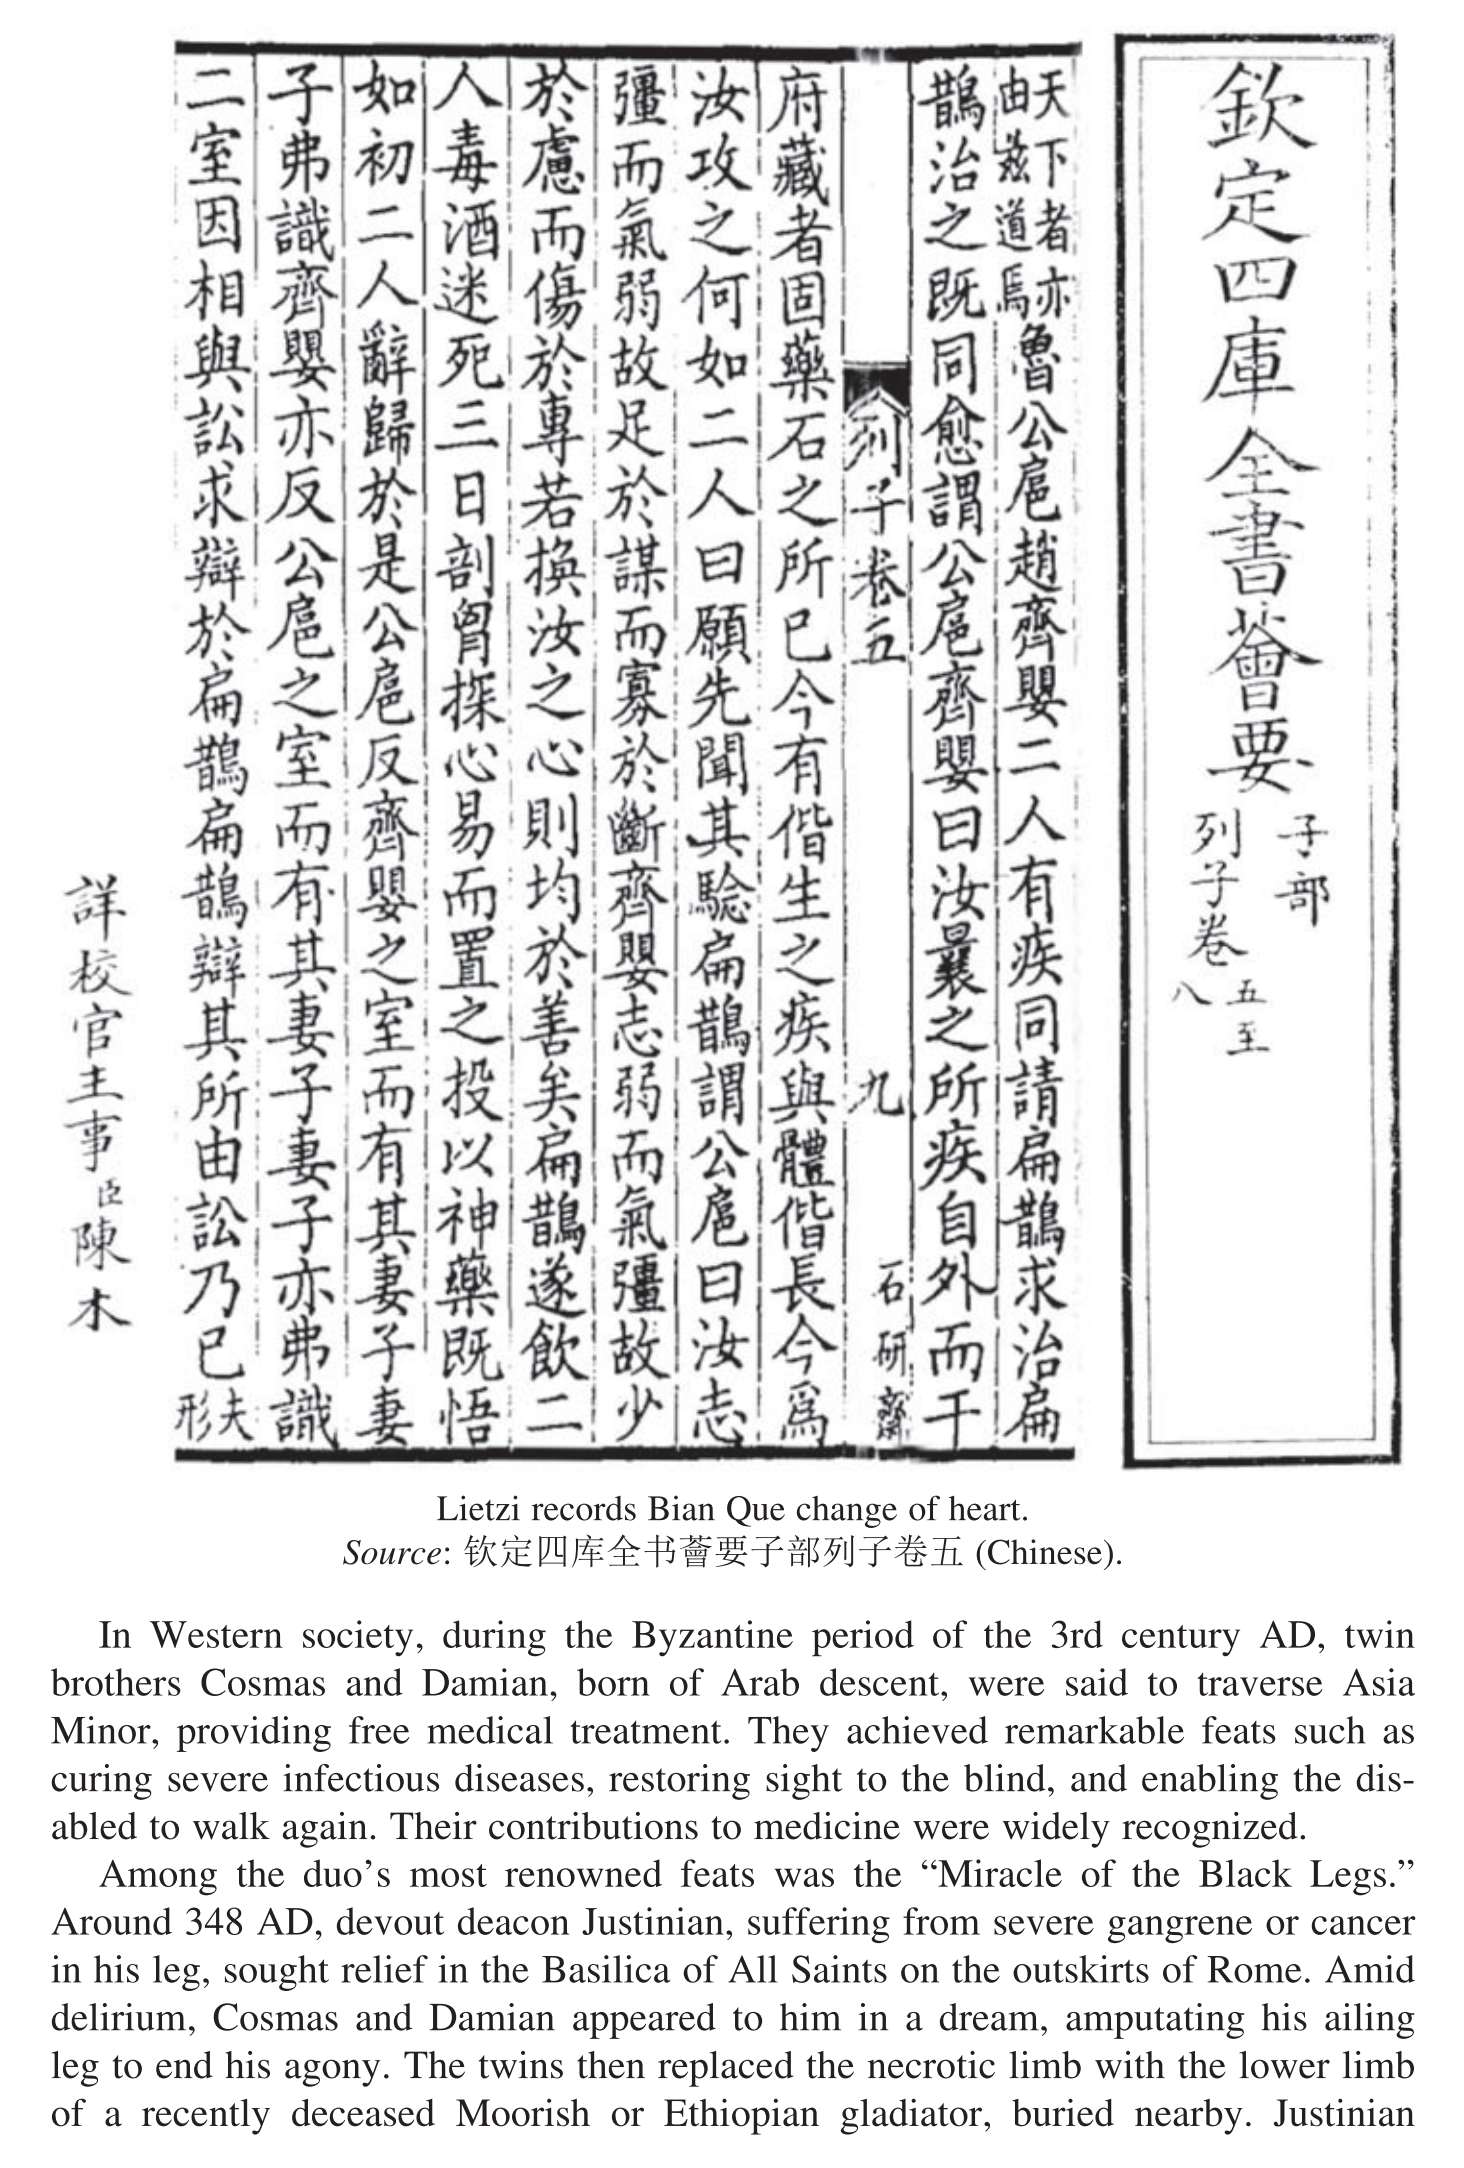 欽定四庫全書薈要
子部
列子卷
五至
八
天下者亦
由玆道焉
魯公扈趙齊嬰二人有疾同請扁鵲求治扁
鵲治之既同愈謂公扈齊嬰曰汝曩之所疾自外而干
列子卷五
九
石研齋
府藏者固藥石之所已今有偕生之疾與體偕長今爲
汝攻之何如二人曰願先聞其驗扁鵲謂公扈曰汝志
彊而氣弱故足於謀而寡於斷齊嬰志弱而氣彊故少
於慮而傷於專若換汝之心則均於善矣扁鵲遂飲二
人毒酒迷死三日剖胷探心易而置之投以神藥既悟
如初二人辭歸於是公扈反齊嬰之室而有其妻子妻
子弗識齊嬰亦反公扈之室而有其妻子妻子亦弗識
二室因相與訟求辯於扁鵲扁鵲辯其所由訟乃已
夫
形
詳校官主事臣陳木
Lietzi records Bian Que change of heart.
Source: 钦定四库全书薈要子部列子卷五 (Chinese).
In Western society, during the Byzantine period of the 3rd century AD, twin
brothers Cosmas and Damian, born of Arab descent, were said to traverse Asia
Minor, providing free medical treatment. They achieved remarkable feats such as
curing severe infectious diseases, restoring sight to the blind, and enabling the dis-
abled to walk again. Their contributions to medicine were widely recognized.
Among the duo’s most renowned feats was the “Miracle of the Black Legs.”
Around 348 AD, devout deacon Justinian, suffering from severe gangrene or cancer
in his leg, sought relief in the Basilica of All Saints on the outskirts of Rome. Amid
delirium, Cosmas and Damian appeared to him in a dream, amputating his ailing
leg to end his agony. The twins then replaced the necrotic limb with the lower limb
of a recently deceased Moorish or Ethiopian gladiator, buried nearby. Justinian